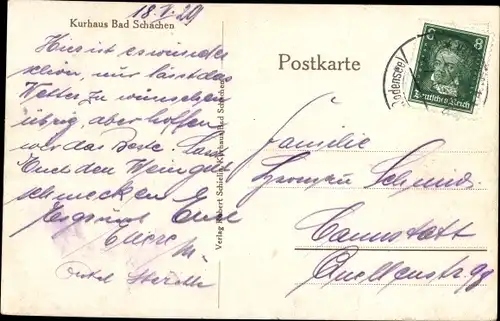 Kurhaus Bad Schachen
18.V.29
Hier ist es wunder
schön, nur lässt das
Wetter zu wünschen
übrig, aber hoffen
wir das Beste. Lasst
Euch den Wein gut
schmecken &
Eure
Verlag Robert Schielin, Kurhaus Bad Schachen
Postkarte
(Bodensee)
8 8
Deutsches Reich
Familie
Schmid
Cannstatt
Quellenstr. 99